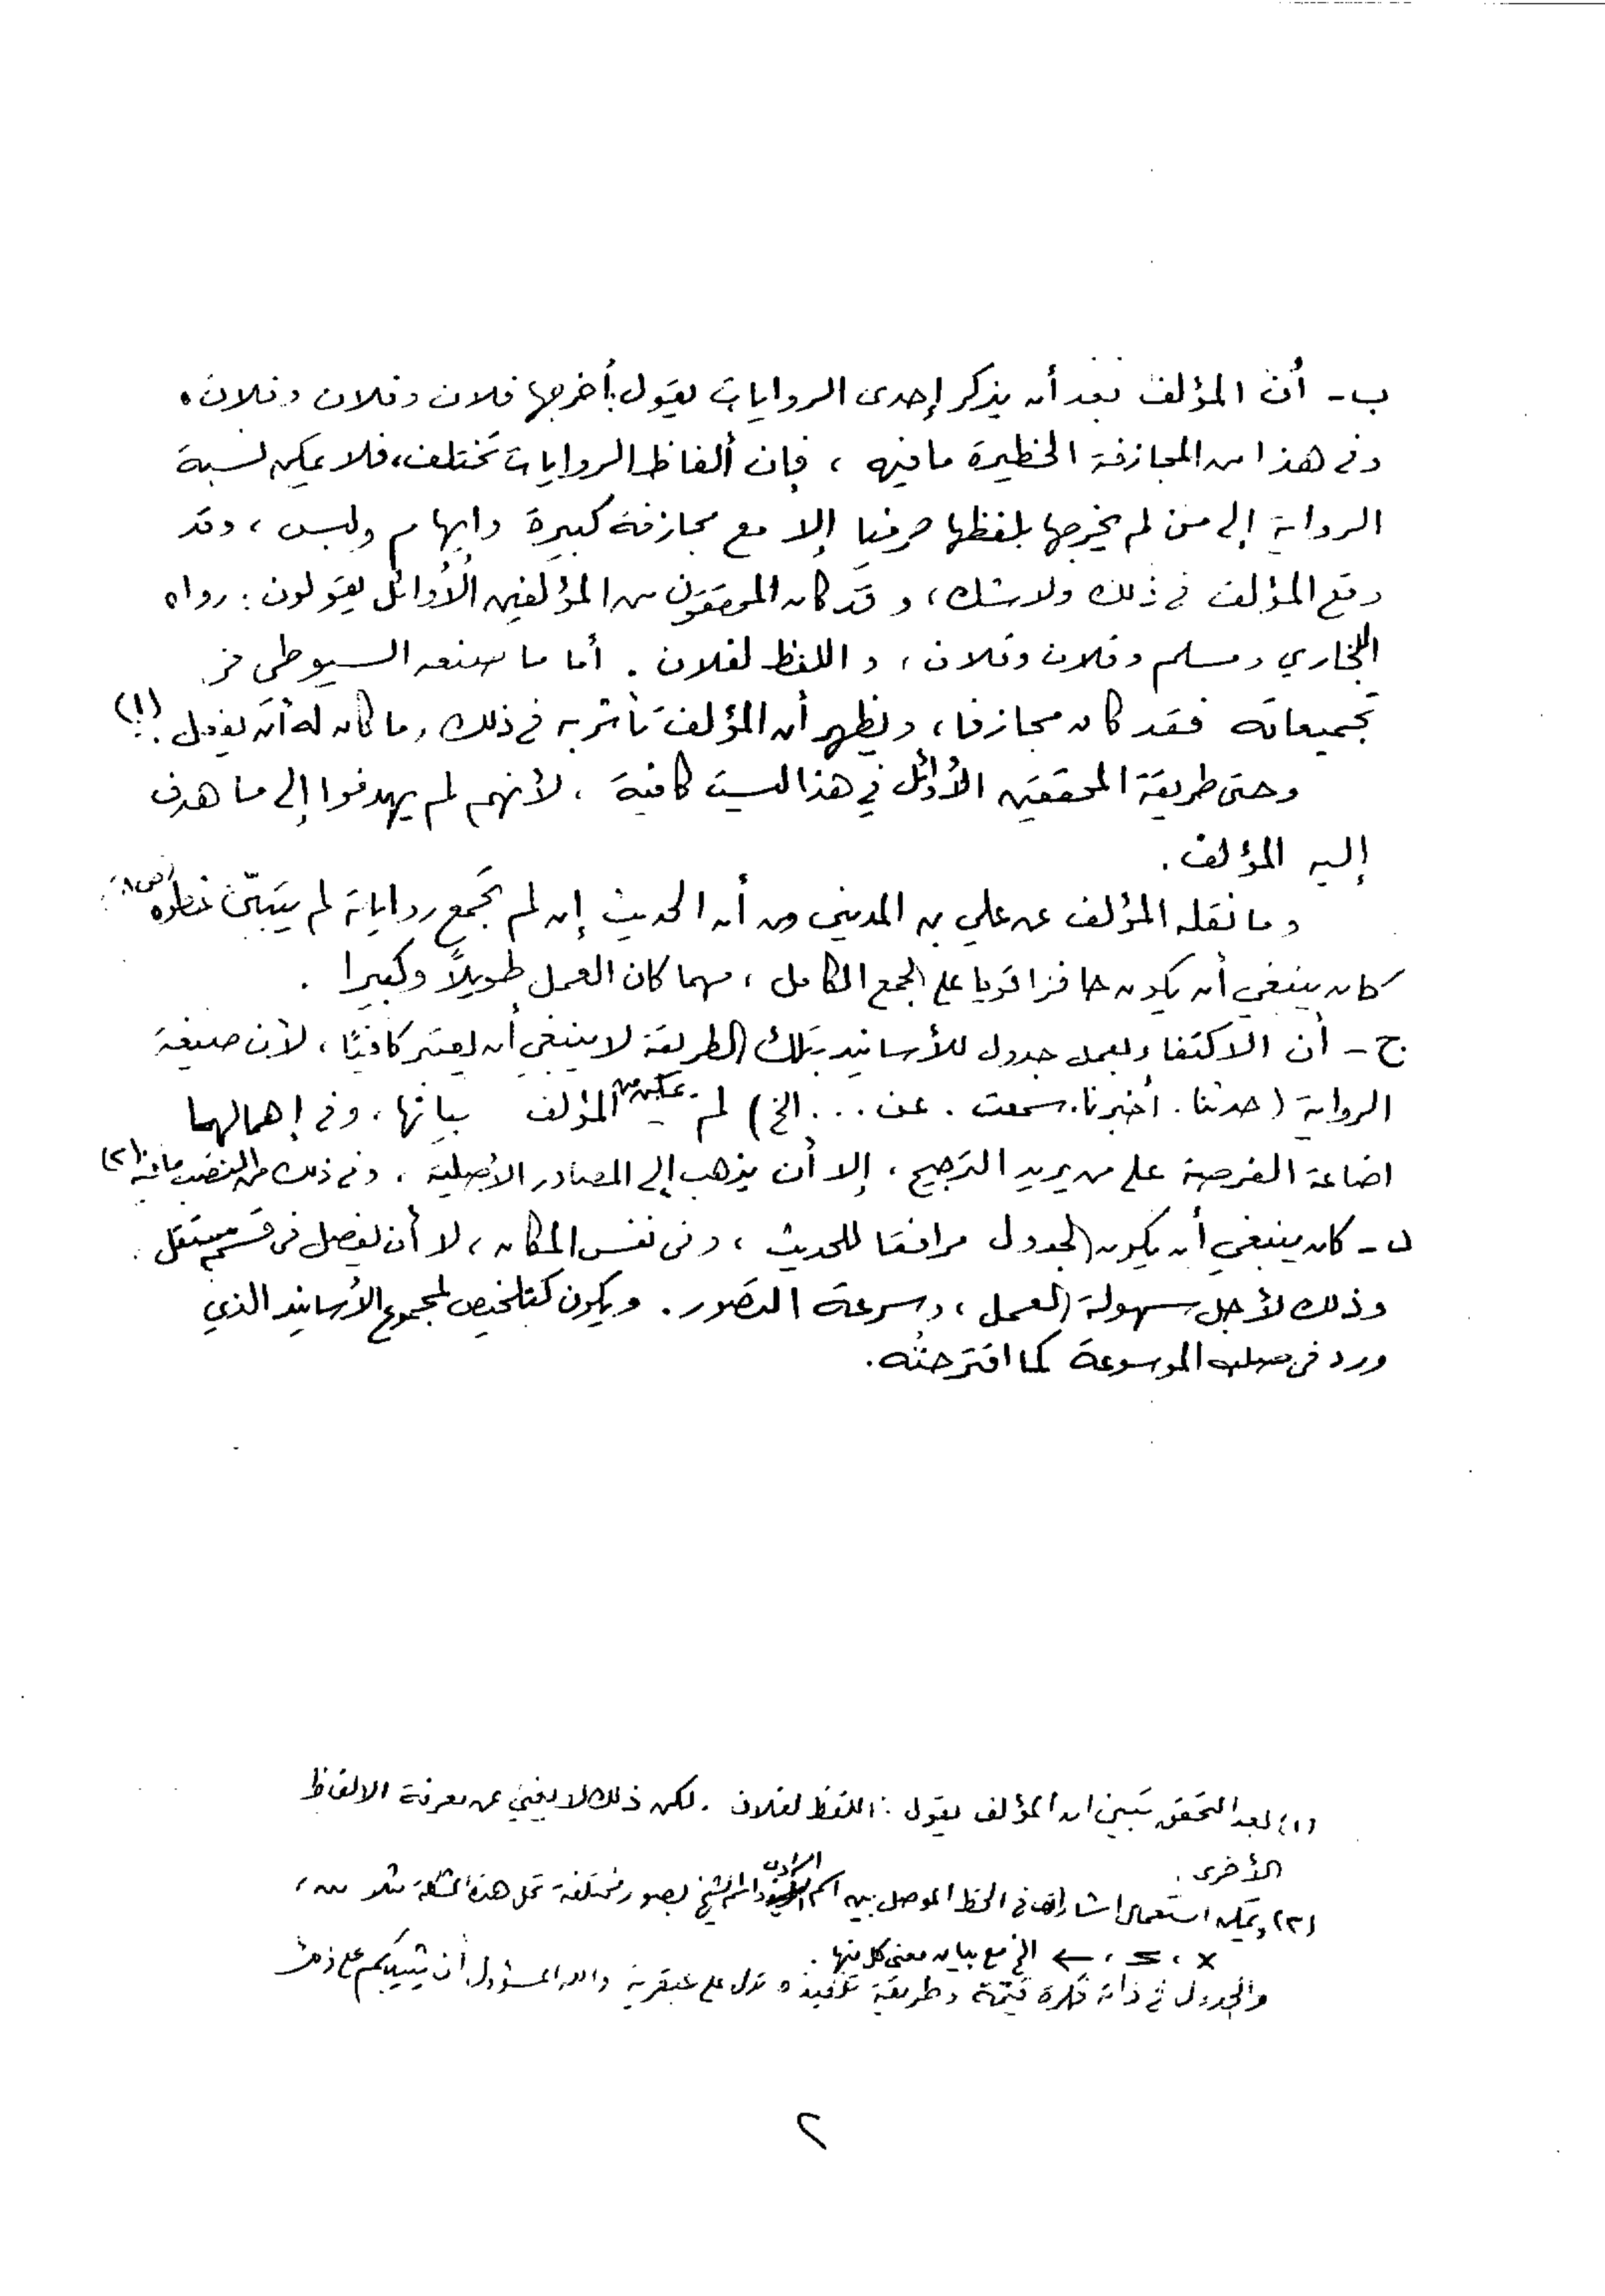 ب - أن المؤلف بعد أن يذكر إحدى الروايات يقول: أخرجها فلان وفلان وفلان.
وفى هذا من المجازفة الخطيرة ما فيه ، فإن ألفاظ الروايات تختلف، فلا يمكن نسبة
الرواية إلى من لم يخرجها بلفظها حرفيا إلا مع مجازفة كبيرة وايهام ولبس ، وقد
وقع المؤلف في ذلك ولا شك ، وقد كان المحققون من المؤلفين الأوائل يقولون : رواه
البخاري ومسلم وفلان وفلان ، واللفظ لفلان . أما ما صنعه السيوطى في
تجميعاته فقد كان مجازفا ، ويظهر أن المؤلف تأثر به في ذلك ، وما كان له أن يفعل . (١)
وحتى طريقة المحققين الأوائل في هذا ليست كافية ، لأنهم لم يهدفوا إلى ما هدف
إليه المؤلف .
وما نقله المؤلف عن علي بن المديني من أن الحديث إن لم تجمع رواياته لم يتبيّن خطؤه (ص ٨)
كان ينبغي أن يكون حافزا قويا على الجمع الكامل ، مهما كان العمل طويلاً وكبيرا .
ج - أن الاكتفاء بعمل جدول للأسانيد بتلك الطريقة لا ينبغي أن يعتبر كافيًا ، لأن صيغة
الرواية (حدثنا . أخبرنا . سمعت . عن . . . الخ) لم يمكن المؤلف بيانها . وفى إهمالها
اضاعة الفرصة على من يريد الترجيح ، إلا أن يذهب إلى المصادر الأصلية . وفى ذلك من النصب ما فيه (٢)
د - كان ينبغي أن يكون الجدول مرافقا للحديث ، وفى نفس المكان ، لا أن يفصل فى قسم مستقل .
وذلك لأجل سهولة العمل ، وسرعة التصور . ويكون كتلخيص لمجموع الأسانيد الذي
ورد فى صلب الموسوعة كما اقترحتُه .
(١) بعد التحقق تبين ان المؤلف يقول : اللفظ لفلان . لكن ذلك لا يغني عن معرفة الالفاظ
الأخرى .
(٢) ويمكن استعمال اشارات في الخط الموصل بين اسم الراوي واسم الشيخ بصور مختلفة تحل هذه المشكلة مثلا ،
× ، = ، ← الخ مع بيان معنى كل منها .
والجدول في ذاته فكرة قيّمة وطريقة تنفيذه تدل على عبقرية والله المسؤول أن يثيبكم على ذلك
٢